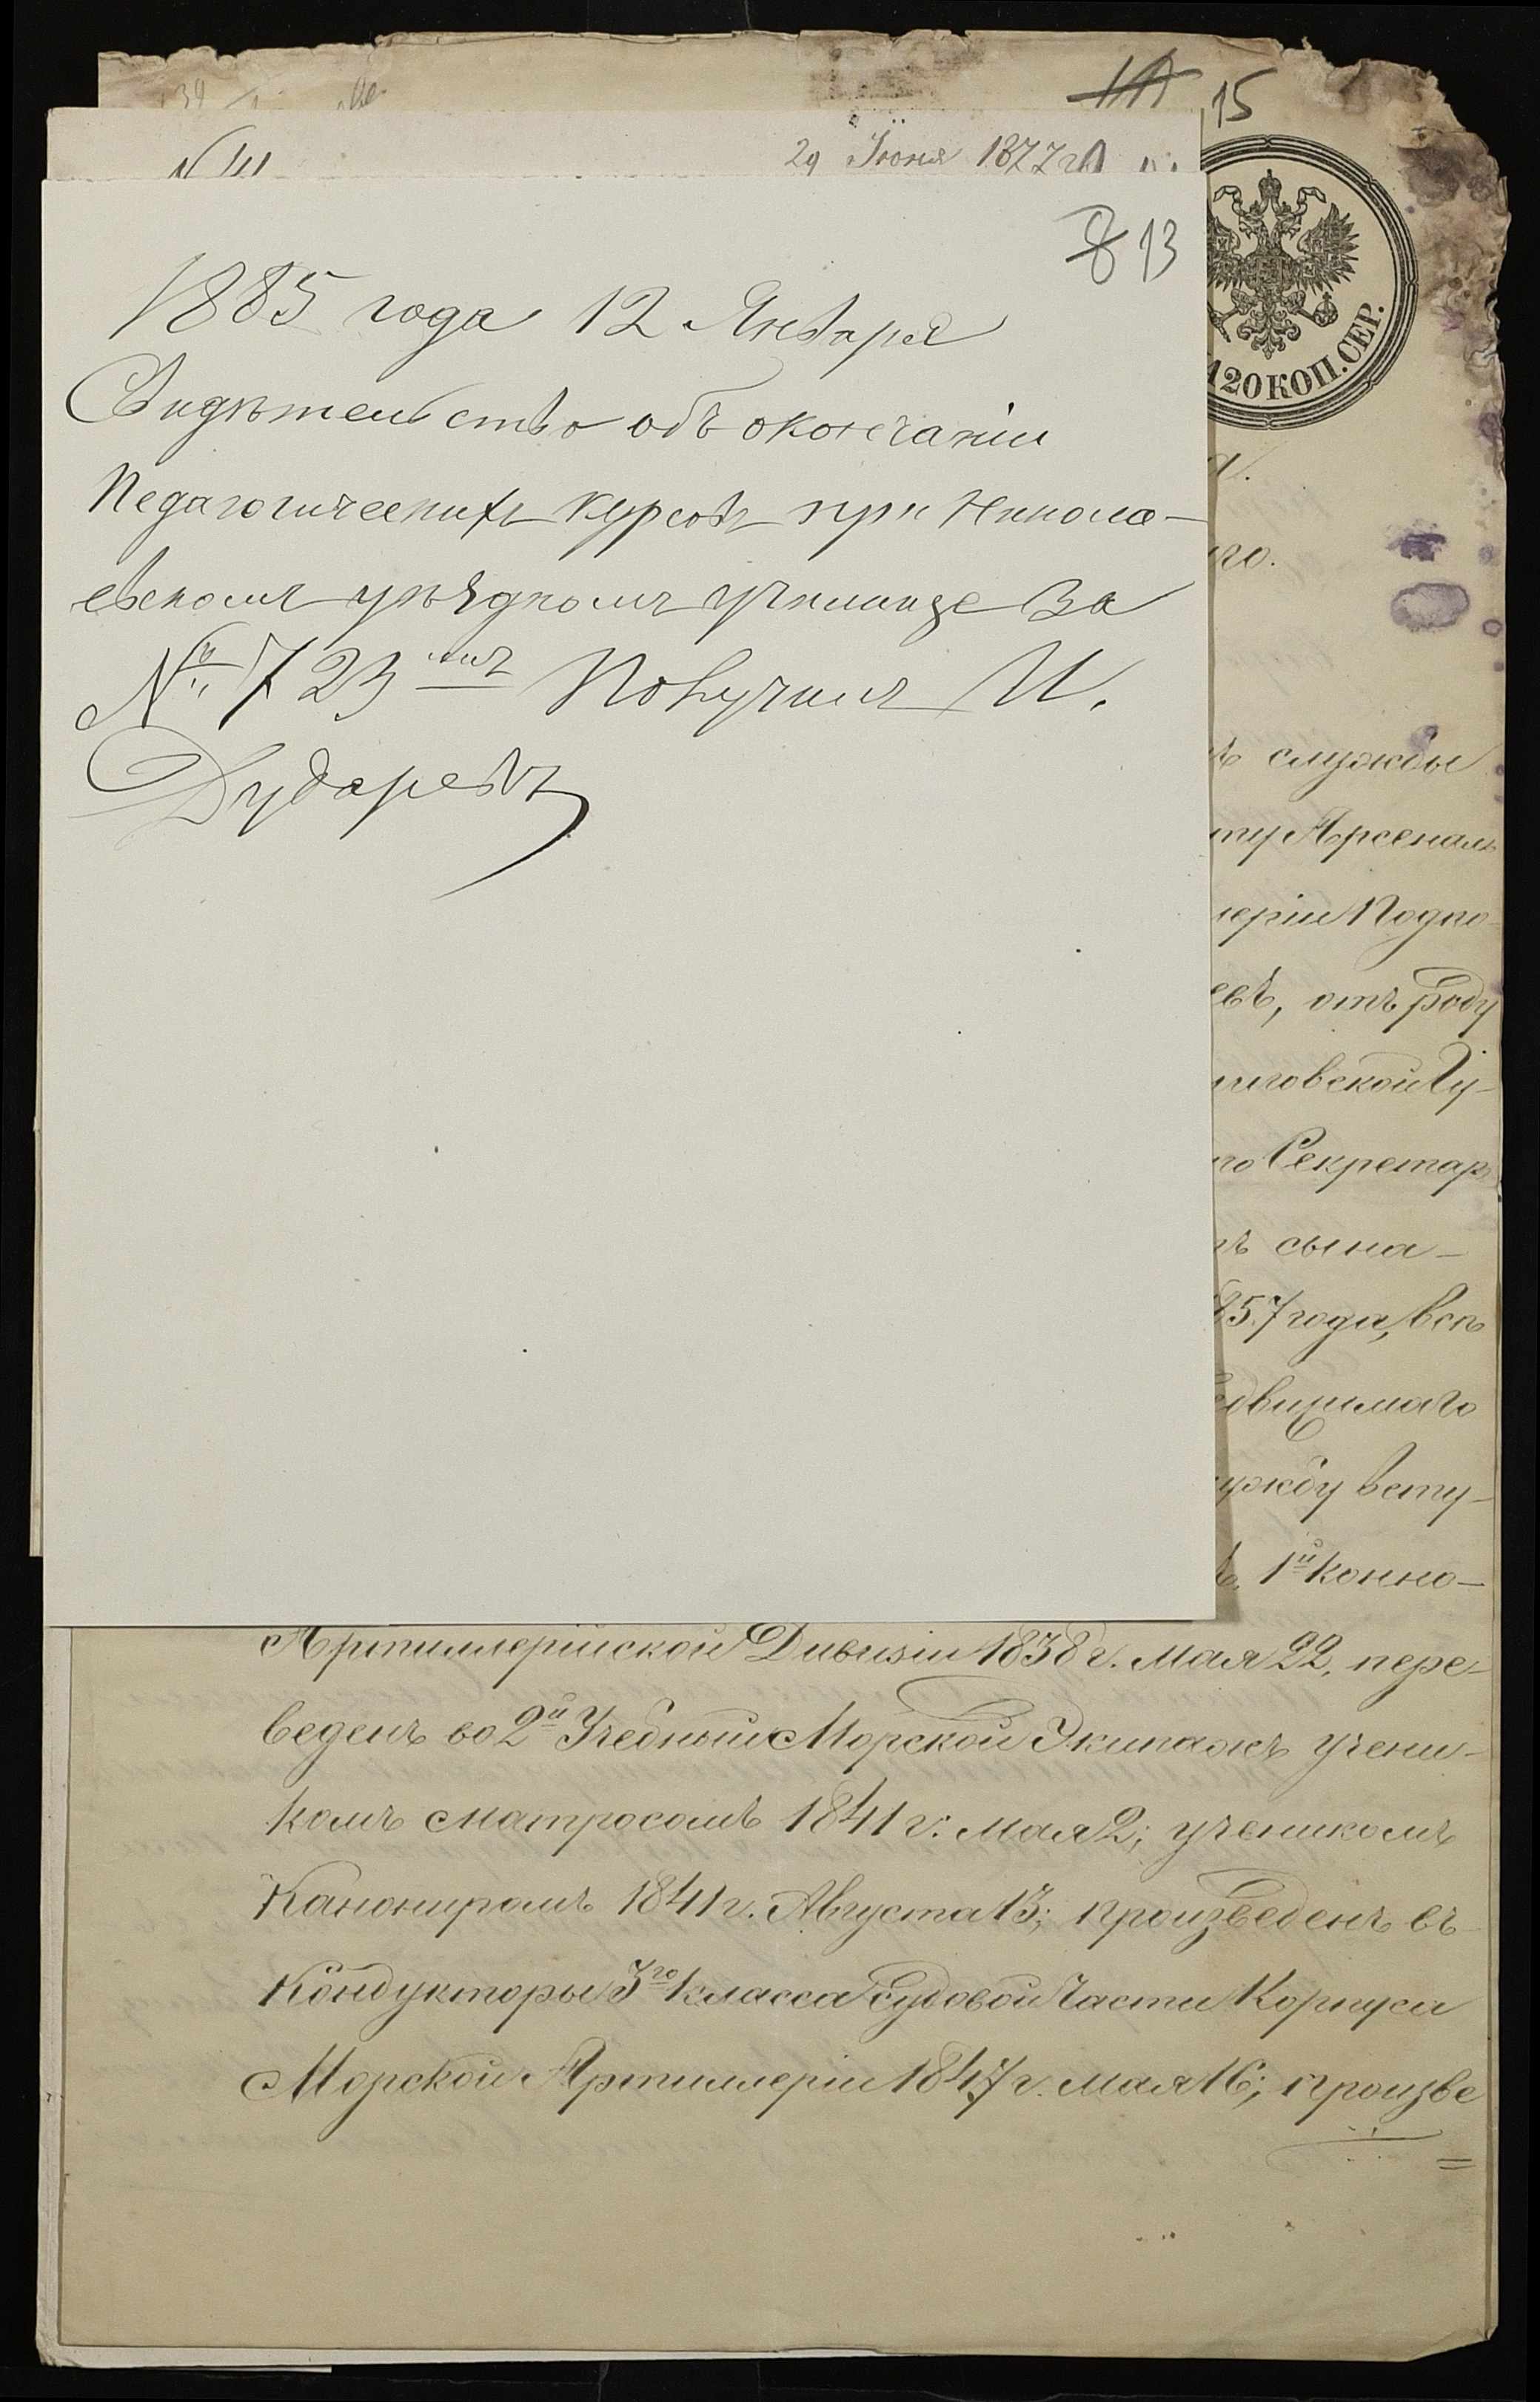 15
29 Іюня 1877 г.
8 13
1885 года 12 Января
Свидѣтельство объ окончаніи
Педагогическихъ курсовъ при Никола-
евскомъ уѣздномъ училище за
№ 723 мъ Получилъ И.
Дударевъ
А 20 КОП. СЕР.
го.
ъ службы
ту Арсеналъ
леріи Подпо-
евъ, отъ роду
иговской Гу-
го Секретар
ъ сына -
857 года, вѣ
едвижимаго
ужбу всту-
1й Конно-
Артиллерійской Дивизіи 1838 г. Мая 22, пере-
веденъ во 2й Учебный Морской Экипажъ учени-
комъ матросомъ 1841 г. Мая 2; ученикомъ
Канониромъ 1841 г. Августа 13; произведенъ въ
Кондукторы 3го класса Судовой Части Корпуса
Морской Артиллеріи 1847 г. Мая 16; произве